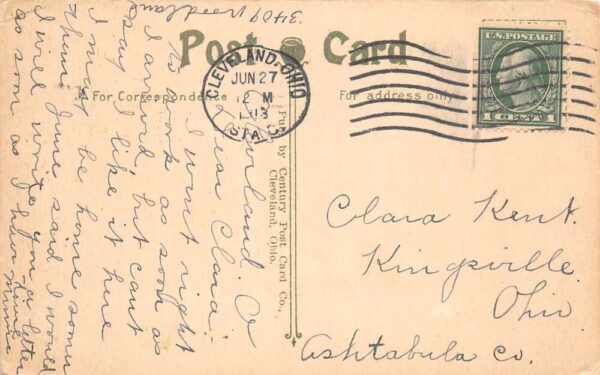 3409 Woodland
Post Card
For Correspondence
For address only
CLEVELAND, OHIO
JUN 27
2 M
1913
STA. C.
U.S. POSTAGE
1 CENT 1
Pub. by Century Post Card Co.,
Cleveland, Ohio.
Cleveland. O
Dear Clara:
I went right
to work as soon as
I arrived, but cant
say I like it here
I may be home some
time. June said I would
I will write you a letter
as soon as I have time
Minnie
Clara Kent.
Kingsville
Ohio
Ashtabula Co.